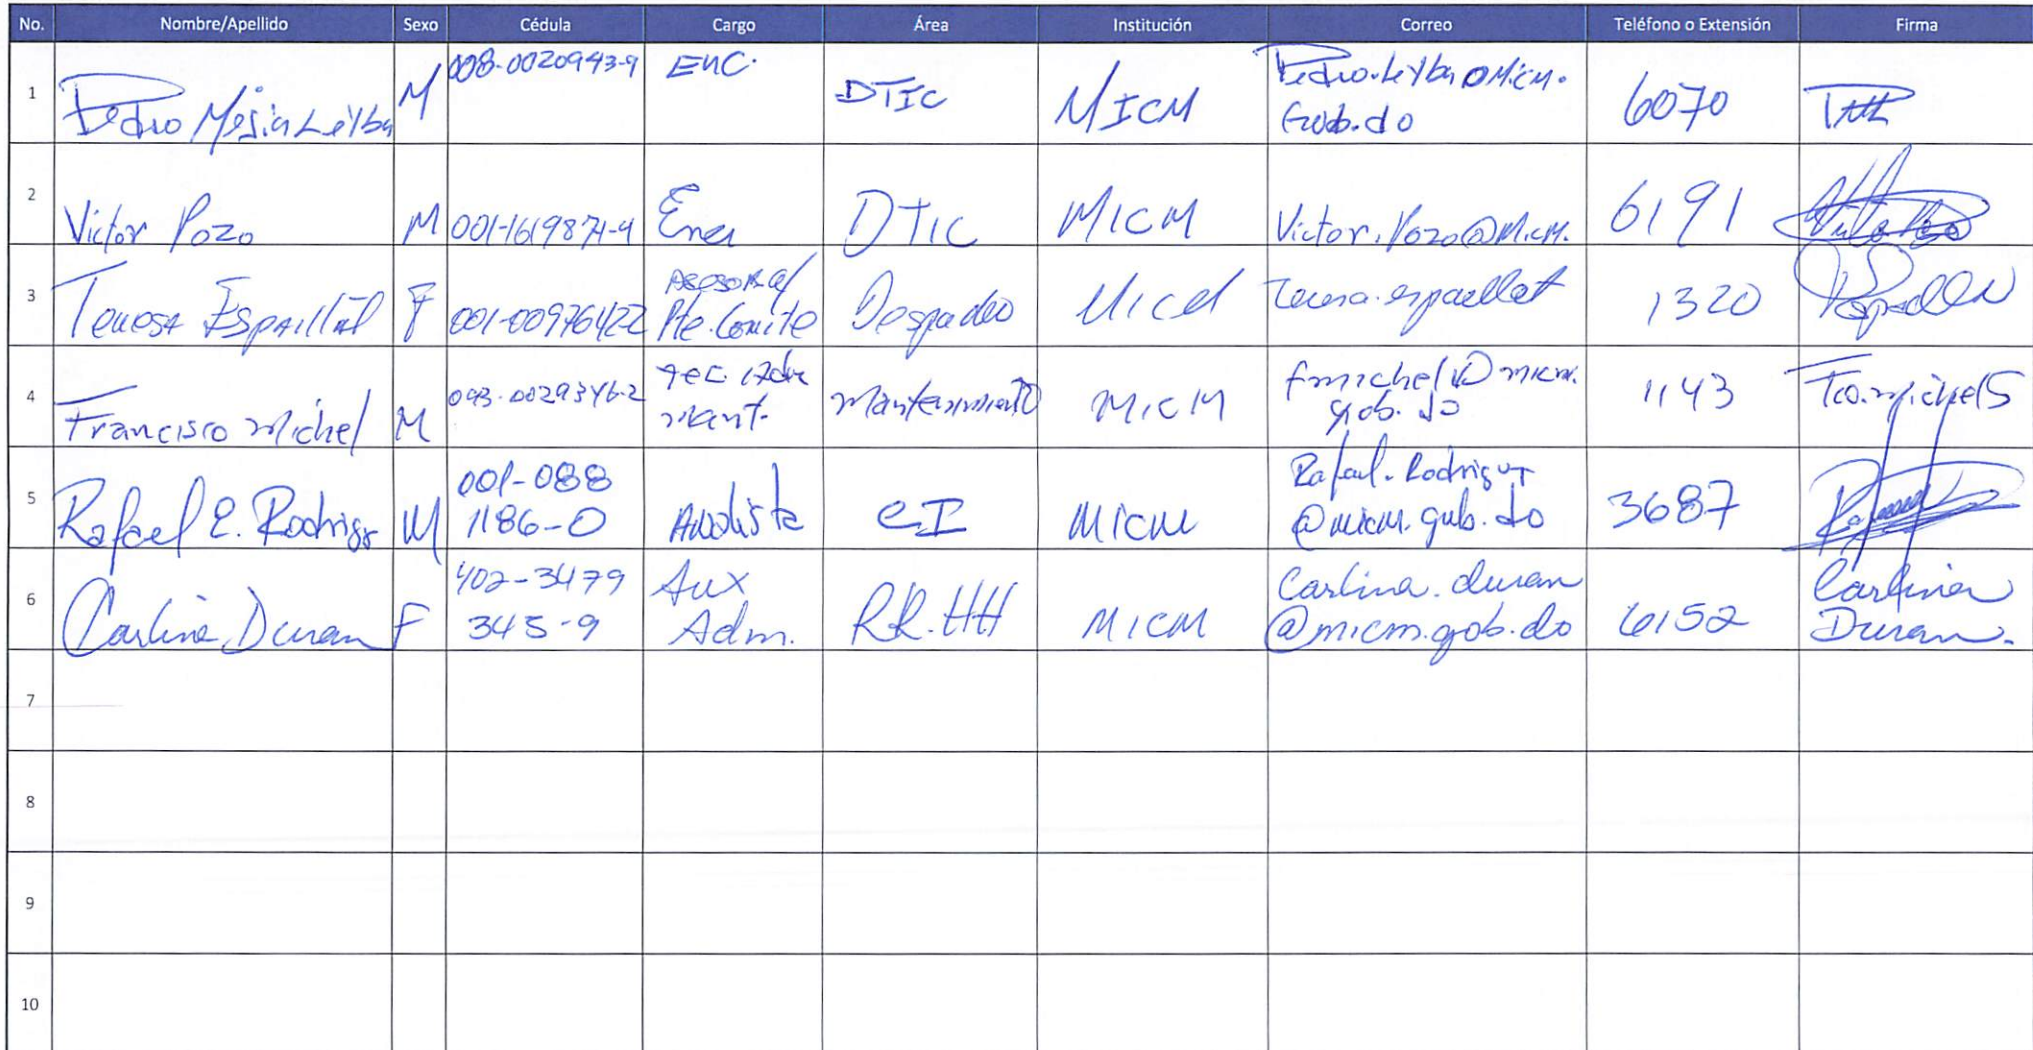 No. Nombre/Apellido Sexo Cédula Cargo Área Institución Correo Teléfono o Extensión Firma
1 Pedro Mejia Leyba M 008-0020943-9 Enc. DTIC MICM Pedro.Leyba@Micm.
Gob.do 6070
2 Victor Pozo M 001-1619871-9 Enc DTIC MICM Victor.Pozo@Micm. 6191
3 Teresa Espaillat F 001-00976422 Asesora/
Pte. Comite Despacho Micm teresa.espaillat 1320
4 Francisco Michel M 093-0029346-2 Tec.
Mant. Mantenimiento MICM fmichel@micm.
gob.do 1143 Fco. Michel
5 Rafael E. Rodrigz M 001-088
1186-0 Analista CI MICM Rafael.Rodriguez
@micm.gob.do 3687
6 Carlina Duran F 402-3479
345-9 Aux
Adm. RR.HH MICM Carlina.duran
@micm.gob.do 6152 Carlina
Duran.
7
8
9
10